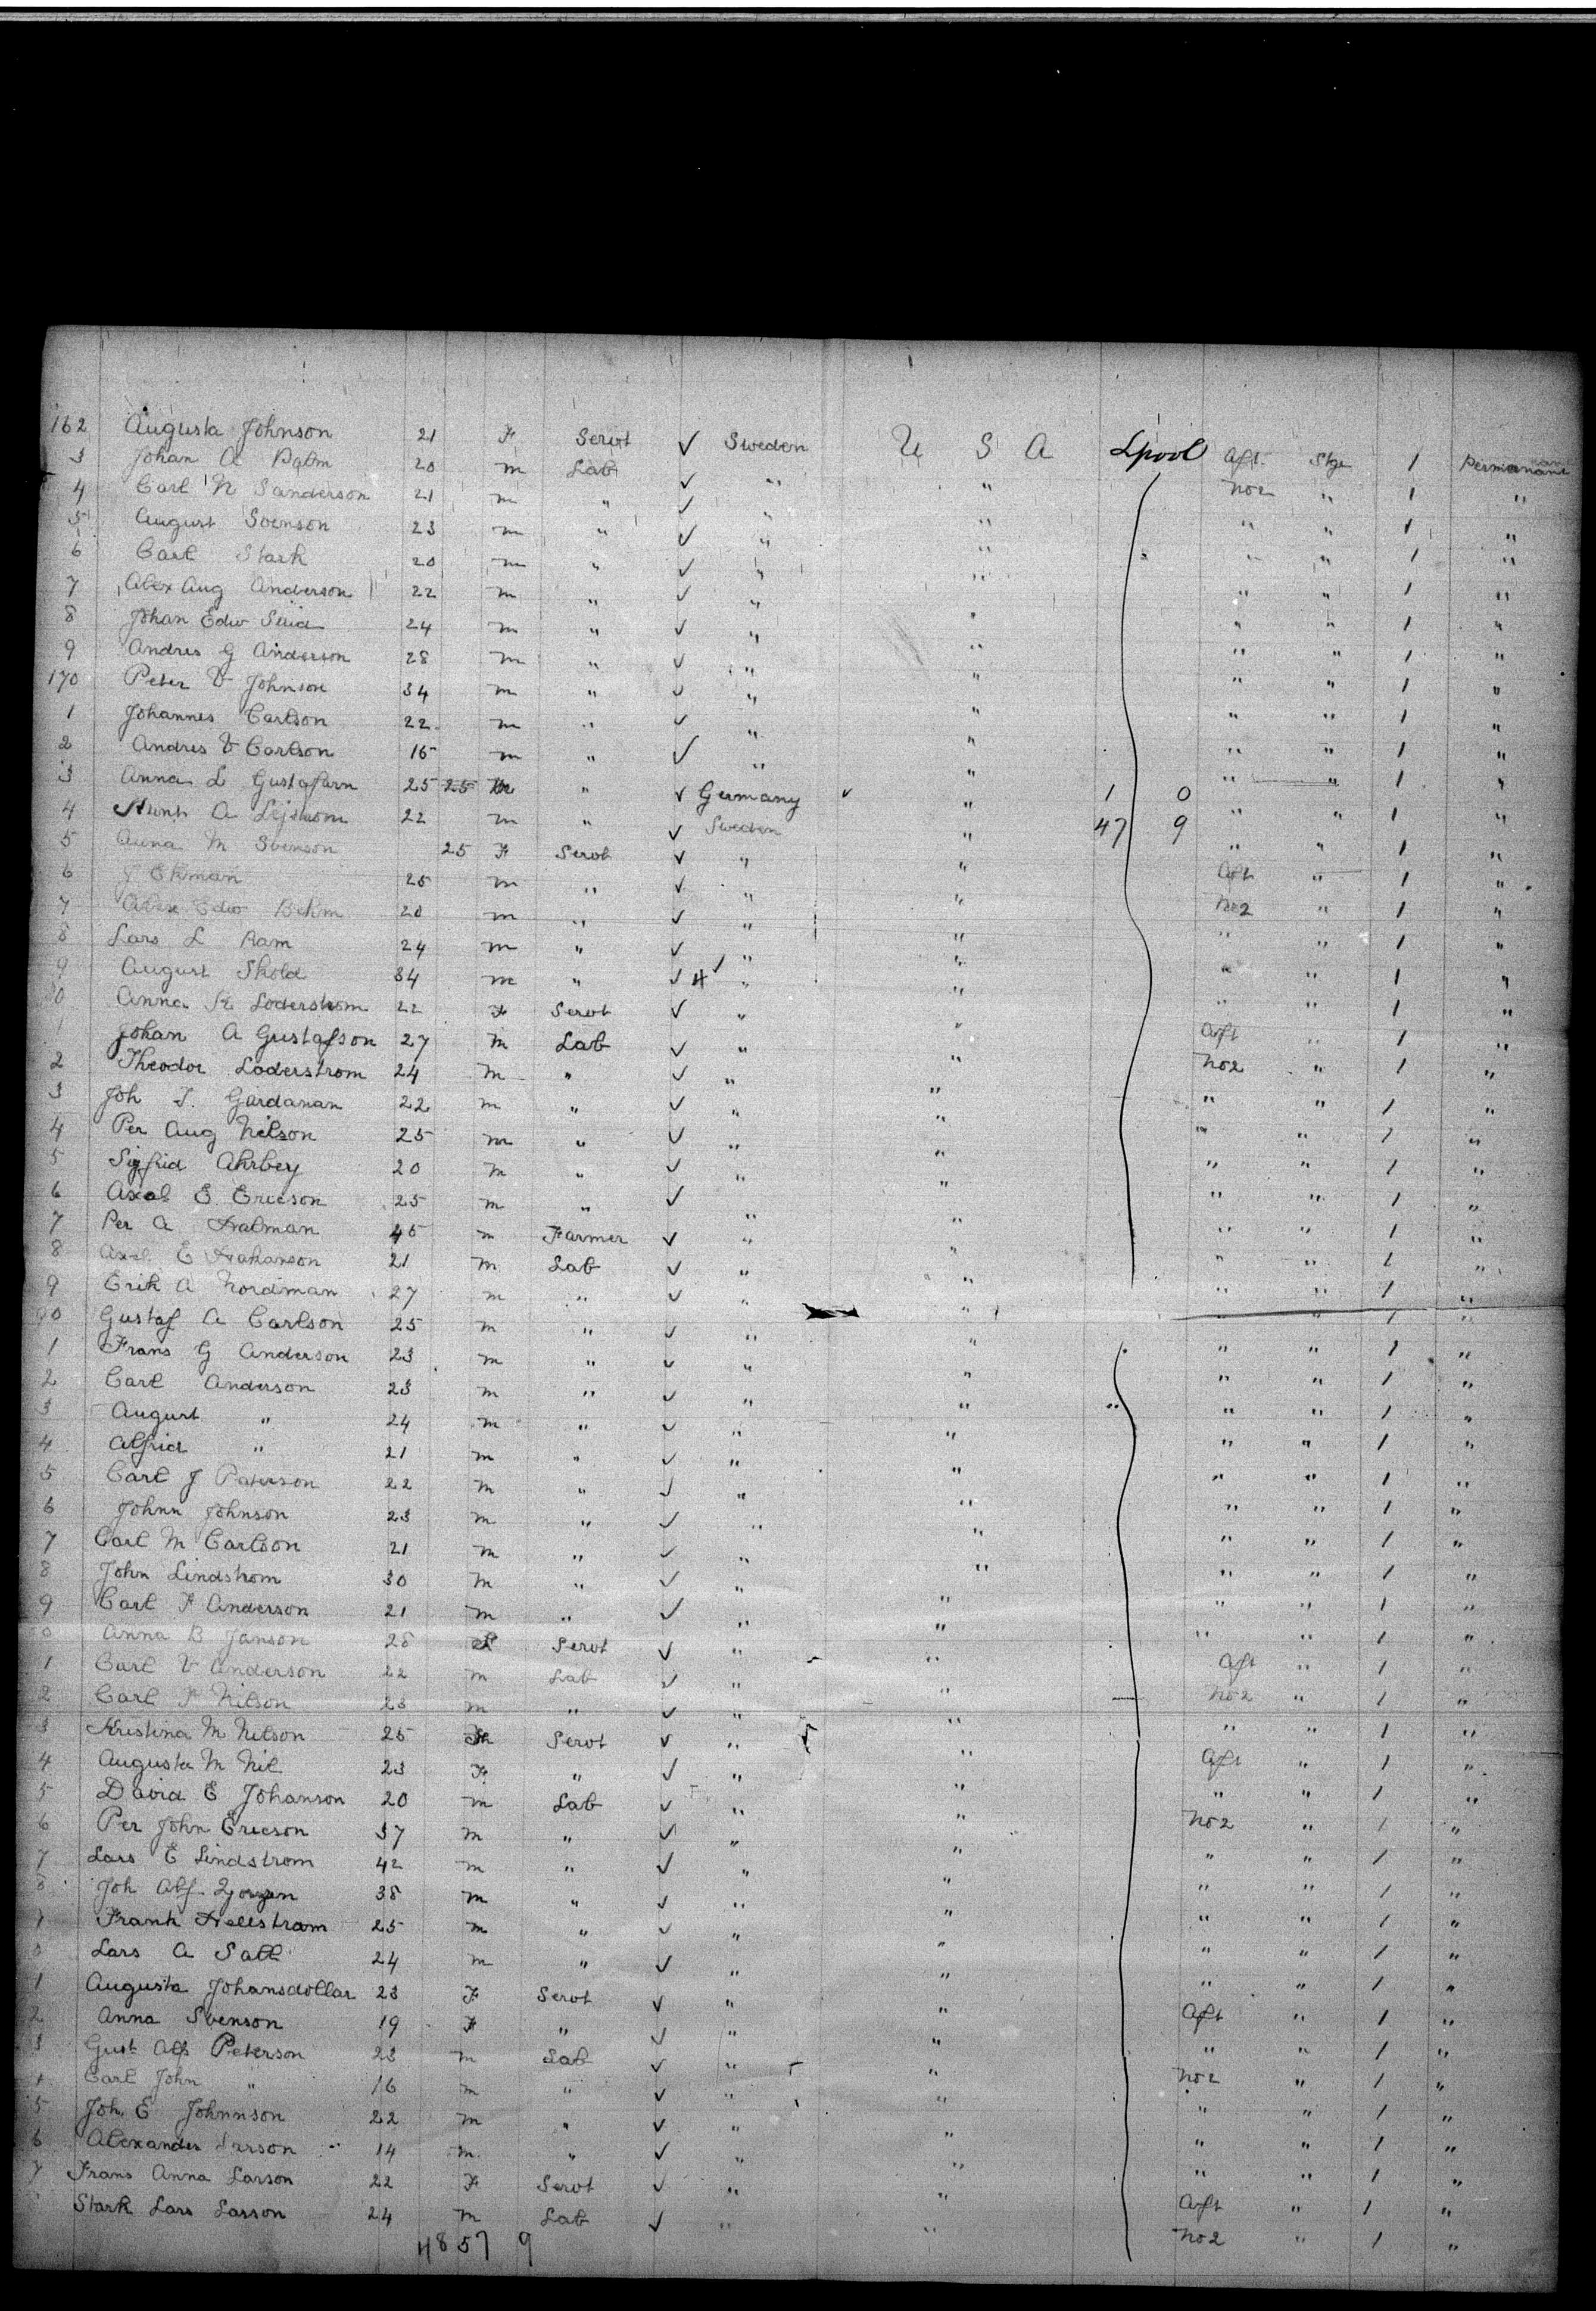 162 Augusta Johnson 21 F Servt ✓ Sweden U S A Lpool Aft Stge 1 Permanant
3 Johan A Palm 20 m Lab ✓ " " No2 " 1 "
4 Carl N Sanderson 21 m " ✓ " " " " 1 "
5 August Svenson 23 m " ✓ " " " " 1 "
6 Carl Stark 20 m " ✓ " " " " 1 "
7 Alex Aug Anderson 22 m " ✓ " " " " 1 "
8 Johan Edw 24 m " ✓ " " " " 1 "
9 Andres G Anderson 28 m " ✓ " " " " 1 "
170 Peter V Johnson 34 m " ✓ " " " " 1 "
1 Johannes Carlson 22 m " ✓ " " " " 1 "
2 Andres V Carlson 16 m " ✓ " " " " 1 "
3 Anna L 25 25 " ✓ Germany ✓ " 1 0 " " 1 "
4 A 22 m " ✓ Sweden " 47 9 " " 1 "
5 Anna M Svenson 25 F Servt ✓ " " Aft " 1 "
6 J Ekman 25 m " ✓ " " No2 " 1 "
7 Alex Edw 20 m " ✓ " " " " 1 "
8 Lars L Ram 24 m " ✓ " " " " 1 "
9 August Skold 34 m " ✓ " " " " 1 "
80 Anna Loderstrom 22 F Servt ✓ " " Aft " 1 "
1 Johan A Gustafson 27 m Lab ✓ " " No2 " 1 "
2 Theodor Loderstrom 24 m " ✓ " " " " 1 "
3 Joh T. Gardanan 22 m " ✓ " " " " 1 "
4 Per Aug Nelson 25 m " ✓ " " " " 1 "
5 Sigfrid Ahrbey 20 m " ✓ " " " " 1 "
6 Axel E Ericson 25 m " ✓ " " " " 1 "
7 Per A Halman 45 m Farmer ✓ " " " " 1 "
8 Axel E Hakanson 21 m Lab ✓ " " " " 1 "
9 Erik A Nordman 27 m " ✓ " " " " 1 "
90 Gustaf A Carlson 25 m " ✓ " " " " 1 "
1 Frans G Anderson 23 m " ✓ " " " " 1 "
2 Carl Anderson 23 m " ✓ " " " " 1 "
3 August " 24 m " ✓ " " " " 1 "
4 Alfrid " 21 m " ✓ " " " " 1 "
5 Carl J Paterson 22 m " ✓ " " " " 1 "
6 Johnn Johnson 23 m " ✓ " " " " 1 "
7 Carl M Carlson 21 m " ✓ " " " " 1 "
8 John Lindstrom 30 m " ✓ " " " " 1 "
9 Carl F Anderson 21 m " ✓ " " " " 1 "
0 Anna B Janson 25 F Servt ✓ " " Aft " 1 "
1 Carl V Anderson 22 m Lab ✓ " " No2 " 1 "
2 Carl F Nilson 23 m " ✓ " " " " 1 "
3 Kristina M Nilson 25 F Servt ✓ " " Aft " 1 "
4 Augusta M Nil 23 F " ✓ " " " " 1 "
5 David E Johanson 20 m Lab ✓ " " No2 " 1 "
6 Per John Ericson 37 m " ✓ " " " " 1 "
7 Lars E Lindstrom 42 m " ✓ " " " " 1 "
8 Joh Alf 38 m " ✓ " " " " 1 "
9 Frank Hellstram 25 m " ✓ " " " " 1 "
0 Lars A Sall 24 m " ✓ " " " " 1 "
1 Augusta Johansdollar 23 F Servt ✓ " " Aft " 1 "
2 Anna Svenson 19 F " ✓ " " " " 1 "
3 Gust Alf Peterson 23 m Lab ✓ " " No2 " 1 "
4 Carl John " 16 m " ✓ " " " " 1 "
5 Joh. E Johnnson 22 m " ✓ " " " " 1 "
6 Alexander 14 m " ✓ " " " " 1 "
7 Frans Anna Larson 22 F Servt ✓ " " Aft " 1 "
Stark Lars Larson 24 m Lab ✓ " " No2 " 1 "
4857 9